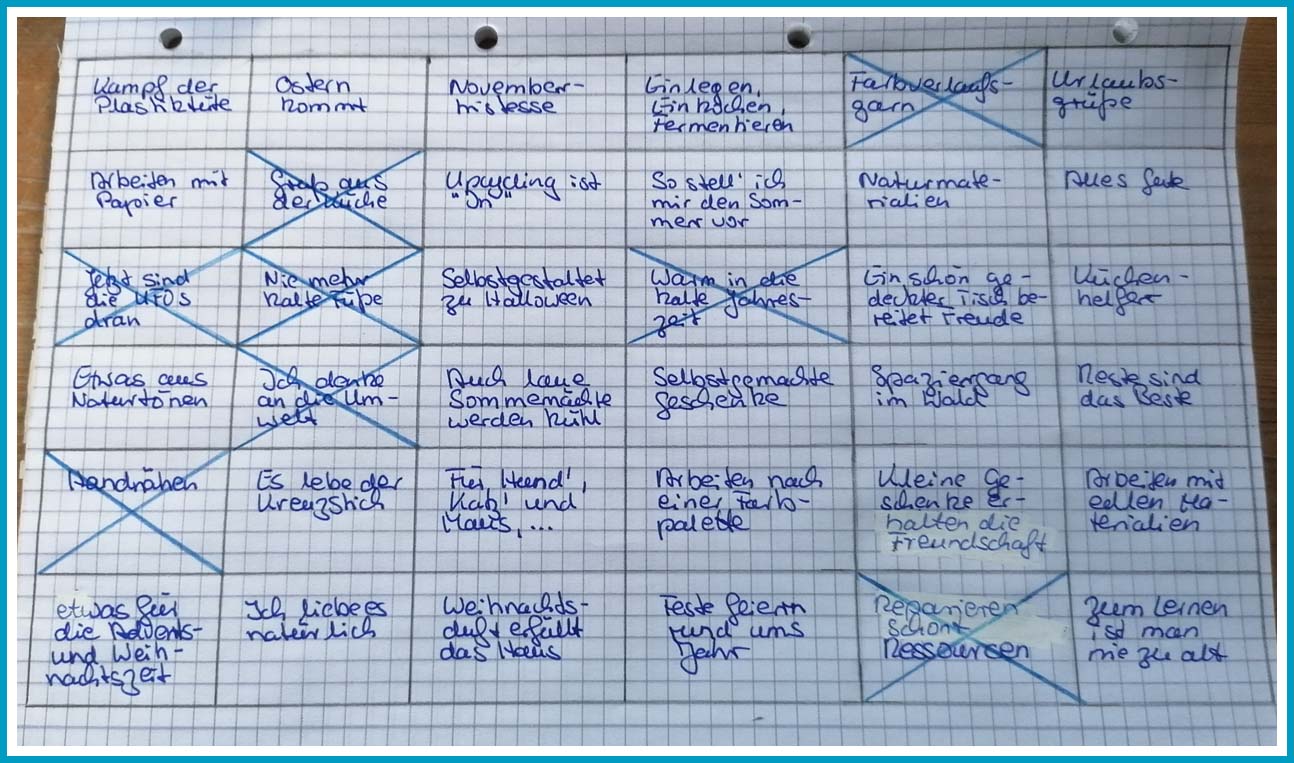 Kampf der
Plastiktüte
Ostern
kommt
November-
mistesse
Einlegen,
Einkochen,
fermentieren
Farbverlaufs-
garn
Urlaubs-
grüße
Arbeiten mit
Papier
Stoff aus
der Küche
Upcycling ist
"in"
So stell' ich
mir den Som-
mer vor
Naturmate-
rialien
Alles
Jetzt sind
die UFOs
dran
Nie mehr
kalte Füße
Selbstgestaltet
zu Halloween
Warm in die
kalte Jahres-
zeit
Ein schön ge-
deckter Tisch be-
reitet Freude
Küchen-
helfer
Etwas aus
Naturtönen
Ich denke
an die Um-
welt
Auch laue
Sommernächte
werden kühl
Selbstgemachte
Geschenke
Spaziergang
im Wald
Reste sind
das Beste
Handnähen
Es lebe der
Kreuzstich
Für Hund',
Katz' und
Maus, ...
Arbeiten nach
einer Farb-
palette
Kleine Ge-
schenke er-
halten die
Freundschaft
Arbeiten mit
edlen Ma-
terialien
etwas für
die Advents-
und Weih-
nachtszeit
Ich liebe es
natürlich
Weihnachts-
duft erfüllt
das Haus
Feste feiern
rund ums
Jahr
Reparieren
schont
Ressourcen
Zum Lernen
ist man
nie zu alt